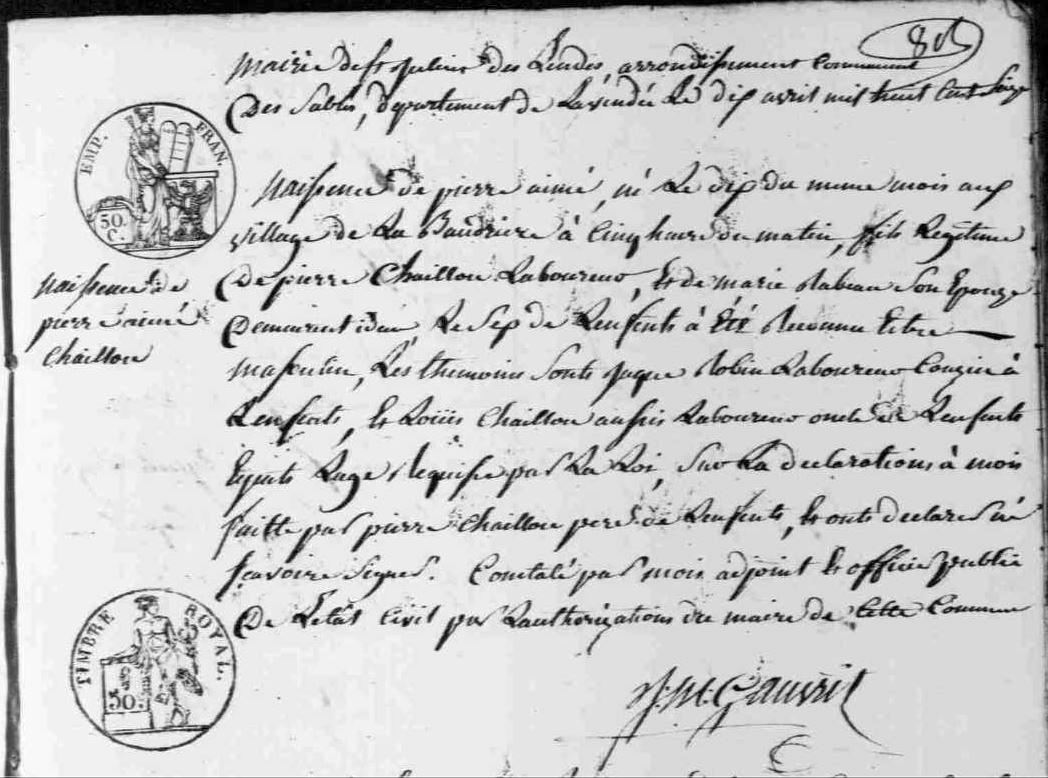 Mairie de st julien des Landes, arrondissement Communal
Des Sables, departement de Lavendée Le dix avril mil huit Cent Seize
EMP. FRAN.
50.
C.
Naissence de pierre aimé, né Le dix du meme mois aux
village de La Baudriere à Cinq heure du matin, fils Legitime
De pierre Chaillou Laboureur, Et de marie Rabeau Son Epouze
Naissence de
pierre aimé
Chaillou
Demeurent idem Le Sex de Lenfents à Eté Reconnu Etre
Masculin, Les themoins Sonts Jaque Robin Laboureur Couzin à
Lenfents, Et Loüis Chaillou aussis Laboureur oncle de Lenfents
Eyants Lage Requise par La Loi, Sur La declarations à mois
faitte par pierre Chaillou pere de Lenfents, Et onts declares ne
Scavoire Signer. Constaté par mois adjoint Et officier public
De Letat Civil par Lauthorizations du maire de Cette Commune
TIMBRE ROYAL.
50.
Gauvrit